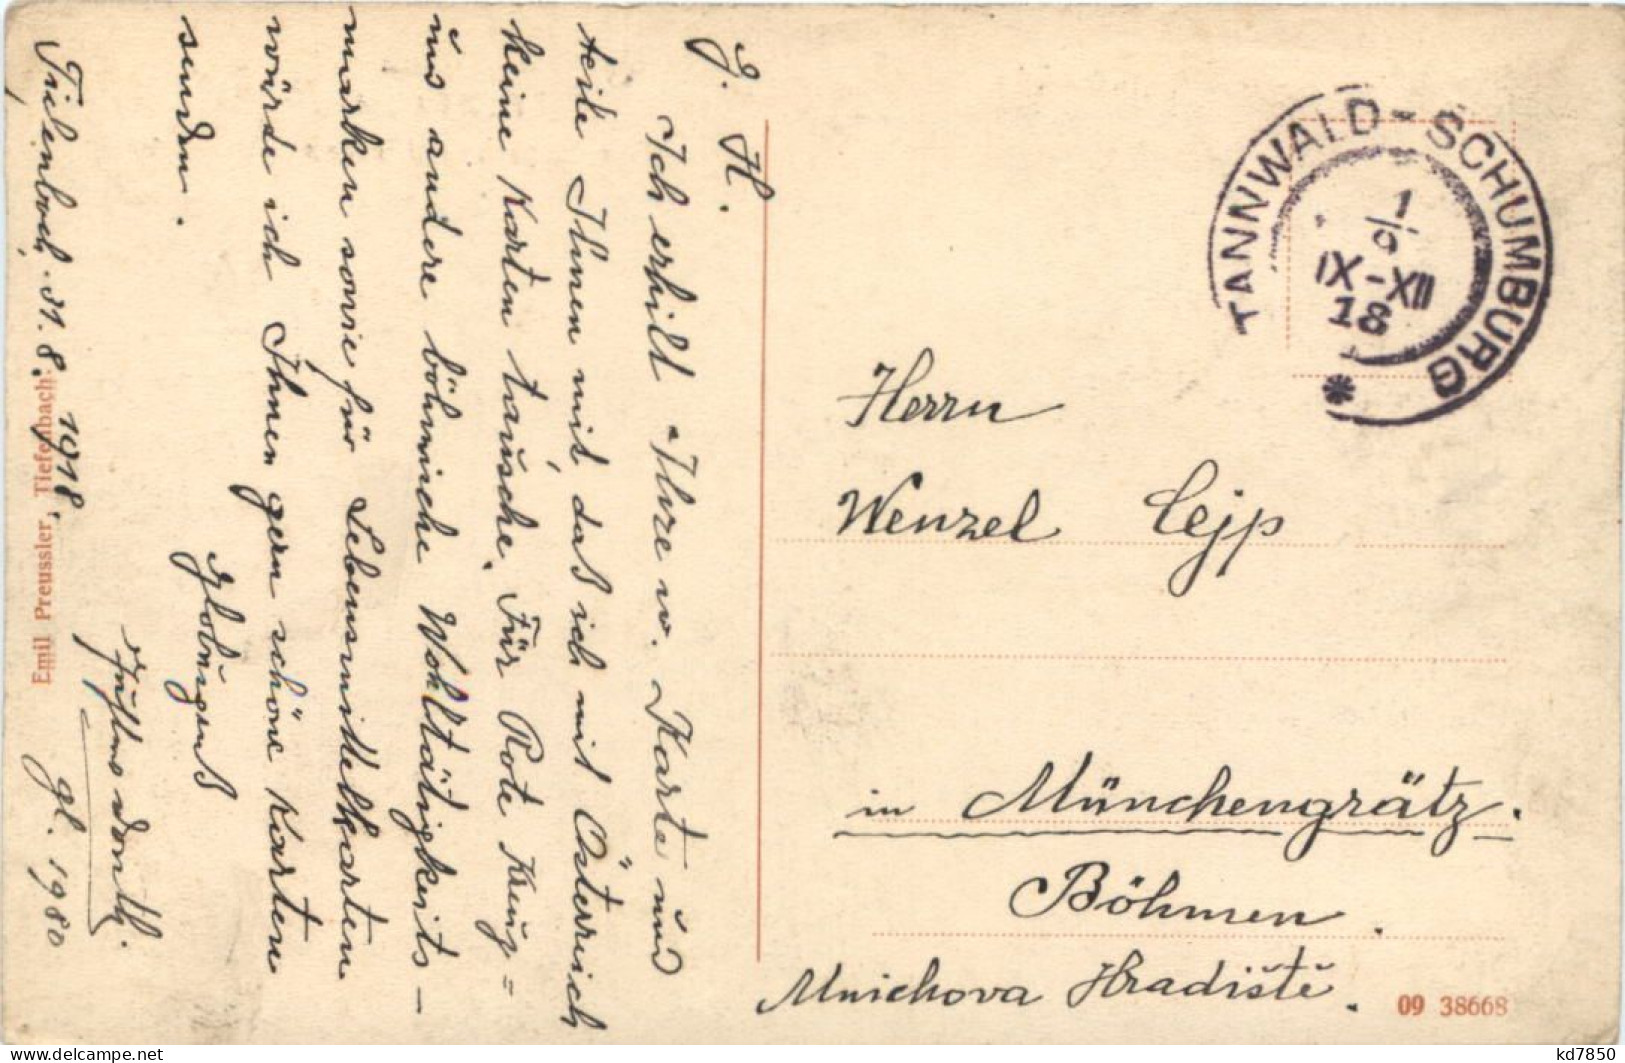 J. H.
Ich erhilt Ihre w. Karte und
teile Ihnen mit daß ich mit Österreich
keine Karten tausche. Für Rote Kreuz=
und andere böhmische Wohltätigkeits-
marken sowie für Lebensmittelkarten
würde ich Ihnen gern schöne Karten
senden.
Donth.
Tiefenbach 31. 8. 1918.
gl. 1980
Emil Preussler, Tiefenbach.
TANNWALD-SCHUMBURG
1/9
IX-XII
18
*
Herrn
Wenzel Cejp
in Münchengrätz.
Böhmen.
Mnichova Hradiště.
09 38668
kd7850